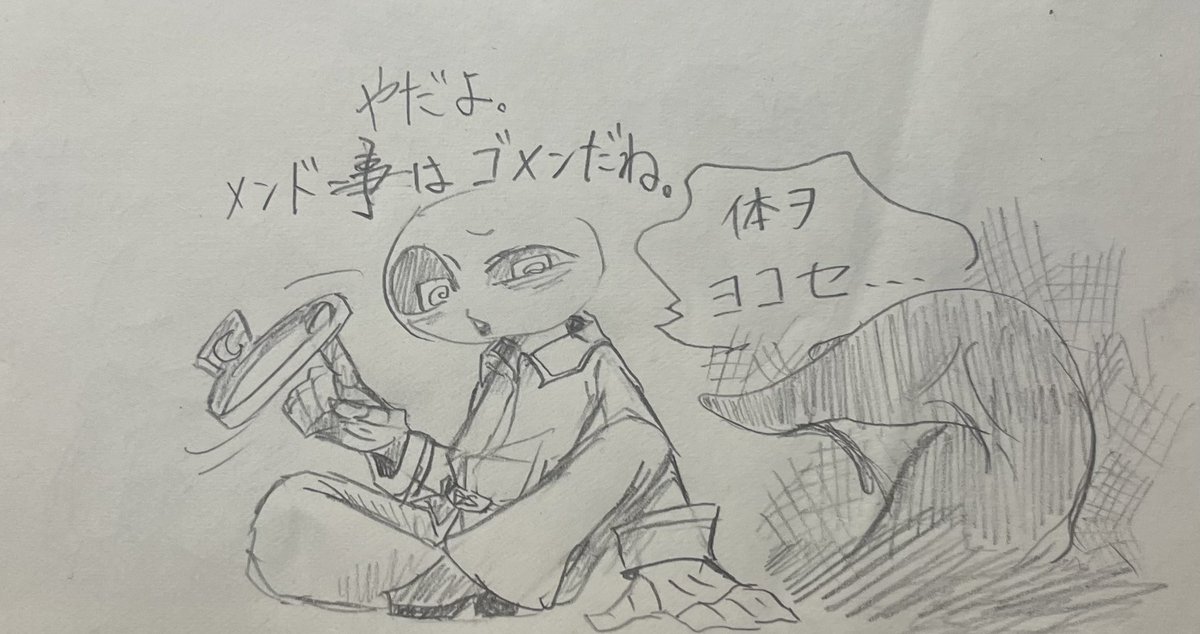 やだよ。
メンド事はゴメンだね。
体ヲ
ヨコセ...